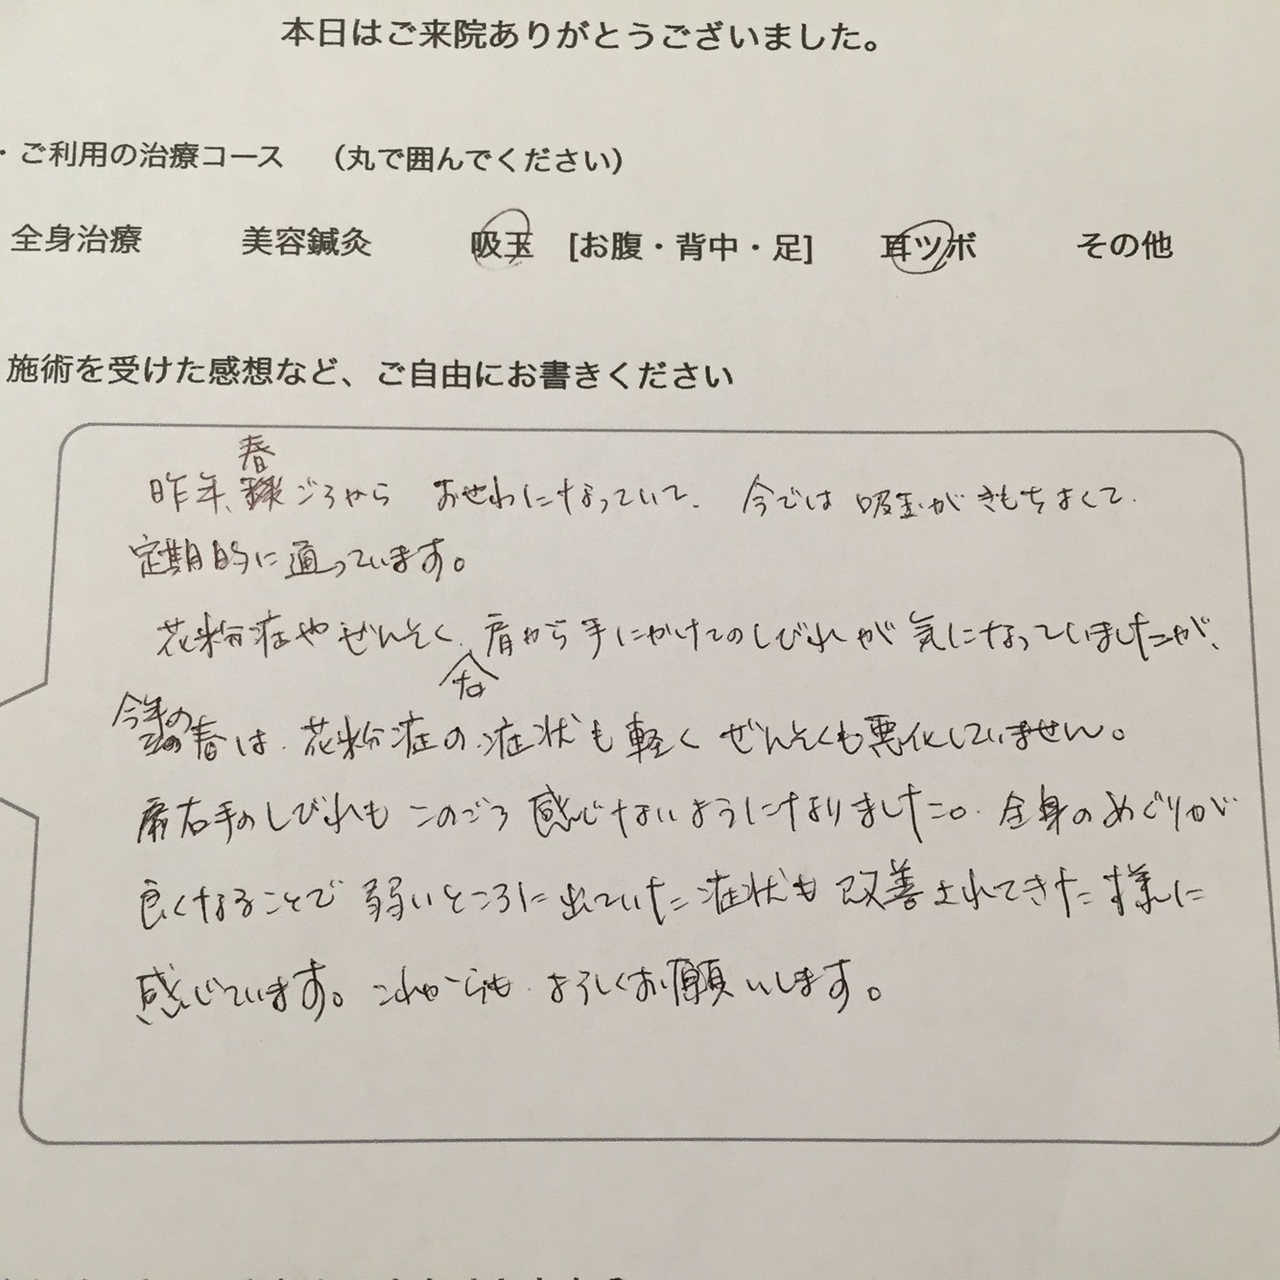 本日はご来院ありがとうございました。
・ご利用の治療コース （丸で囲んでください）
全身治療 美容鍼灸 吸玉 [お腹・背中・足] 耳ツボ その他
施術を受けた感想など、ご自由にお書きください
昨年、春ごろから おせわになっていて、今では 吸玉がきもちよくて、
定期的に通っています。
花粉症やぜんそく、右肩から手にかけてのしびれが気になっていましたが、
今年の春は、花粉症の症状も軽く ぜんそくも悪化していません。
右手のしびれも このごろ 感じないようになりました。全身のめぐりが
良くなることで 弱いところに出ていた症状も 改善されてきた様に
感じています。これからも、よろしくお願いします。